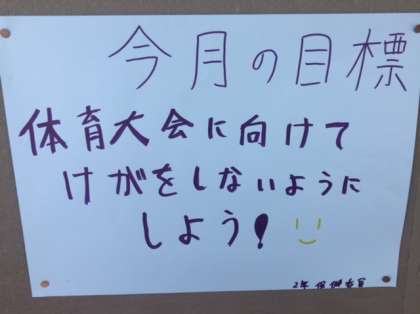 今月の目標
体育大会に向けて
けがをしないように
しよう!
2年 保健委員